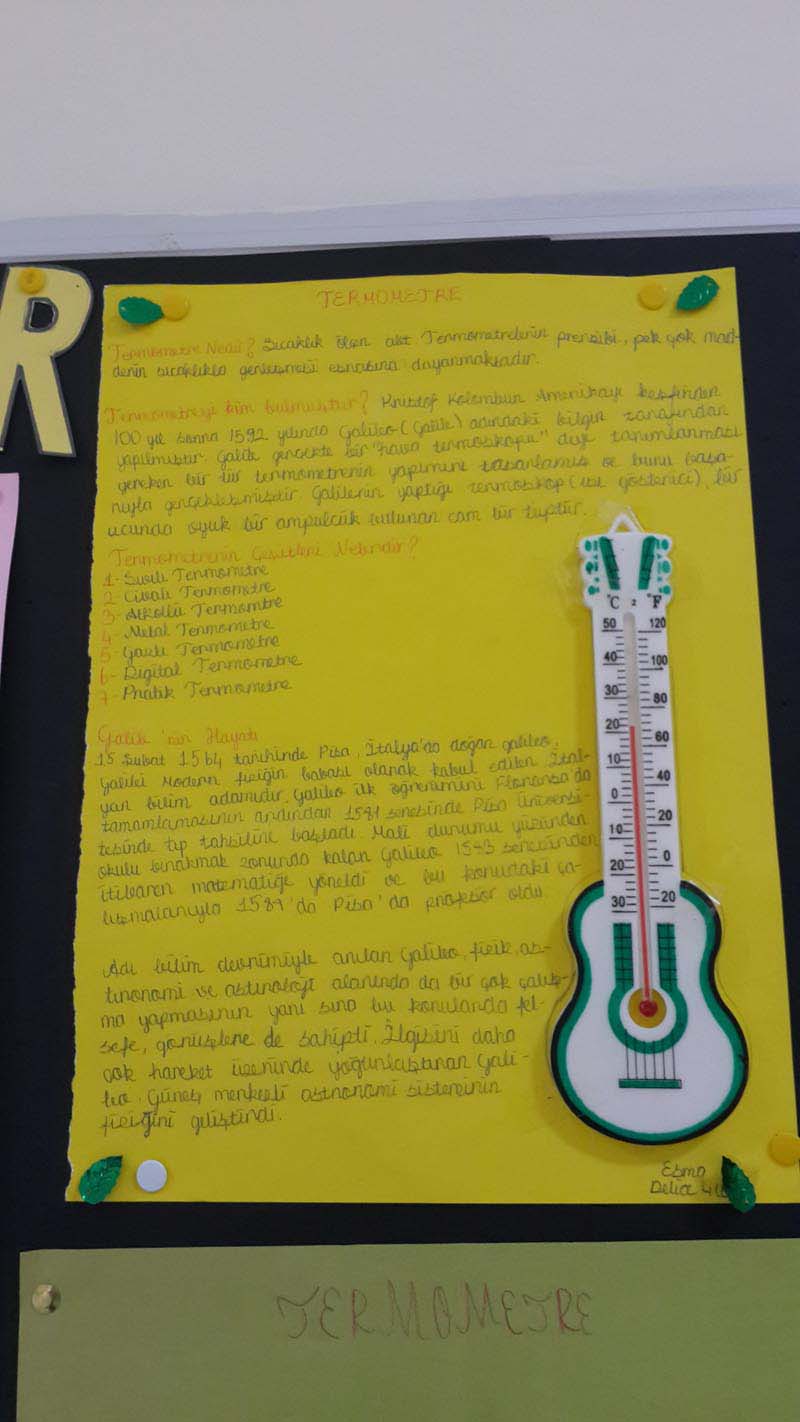 R
TERMOMETRE
Termometre Nedir? Sıcaklık ölçen alet Termometrelerin prensibi, pek çok mad-
denin sıcaklıkla genleşmesi esnasına dayanmaktadır.
Termometreyi kim bulmuştur? Kristof Kolombun Amerikayı keşfinden
100 yıl sonra 1592 yılında Galileo (Galile) adındaki bilgin tarafından
yapılmıştır. Galile gerçekte bir "hava termoskopu" diye tanımlanması
gereken bir tür termometrenin yapımını tasarlamış ve bunu başa-
rıyla gerçekleştirmiştir. Galilenin yaptığı termoskop (ısı gösterici), bir
ucunda oyuk bir ampulcük bulunan cam bir tüptür.
Termometrenin Çeşitleri Nelerdir?
1- Sıvılı Termometre
2- Civalı Termometre
3- Alkollü Termomtre
4- Metal Termometre
5- Gazlı Termometre
6- Digital Termometre
7- Pratik Termometre
Galile 'nin Hayatı
15 Şubat 1564 tarihinde Pisa, İtalya'da doğan galileo,
galilei Modern fiziğin babası olarak kabul edilen İtal-
yan bilim adamıdır. Galileo ilk öğrenimini Floransa'da
tamamlamasının ardından 1581 senesinde Pisa Üniversi-
tesinde tıp tahsiline başladı. Mali durumu yüzünden
okulu bırakmak zorunda kalan Galileo 1583 senesinden
itibaren matematiğe yöneldi ve bu konudaki ça-
lışmalarıyla 1589'da Pisa'da profesör oldu.
Adı bilim devrimiyle anılan Galileo, fizik, as-
tronomi ve astroloji alanında da bir çok çalış-
ma yapmasının yanı sıra bu konularda fel-
sefe, görüşlere de sahipti. İlgisini daha
çok hareket üzerinde yoğunlaştıran Gali-
leo Güneş merkezli astronomi sisteminin
fiziğini geliştirdi.
°C °F
50 120
40 100
30 80
20 60
10 40
0 20
10 0
20 20
30
Esma
Delia
TERMOMETRE